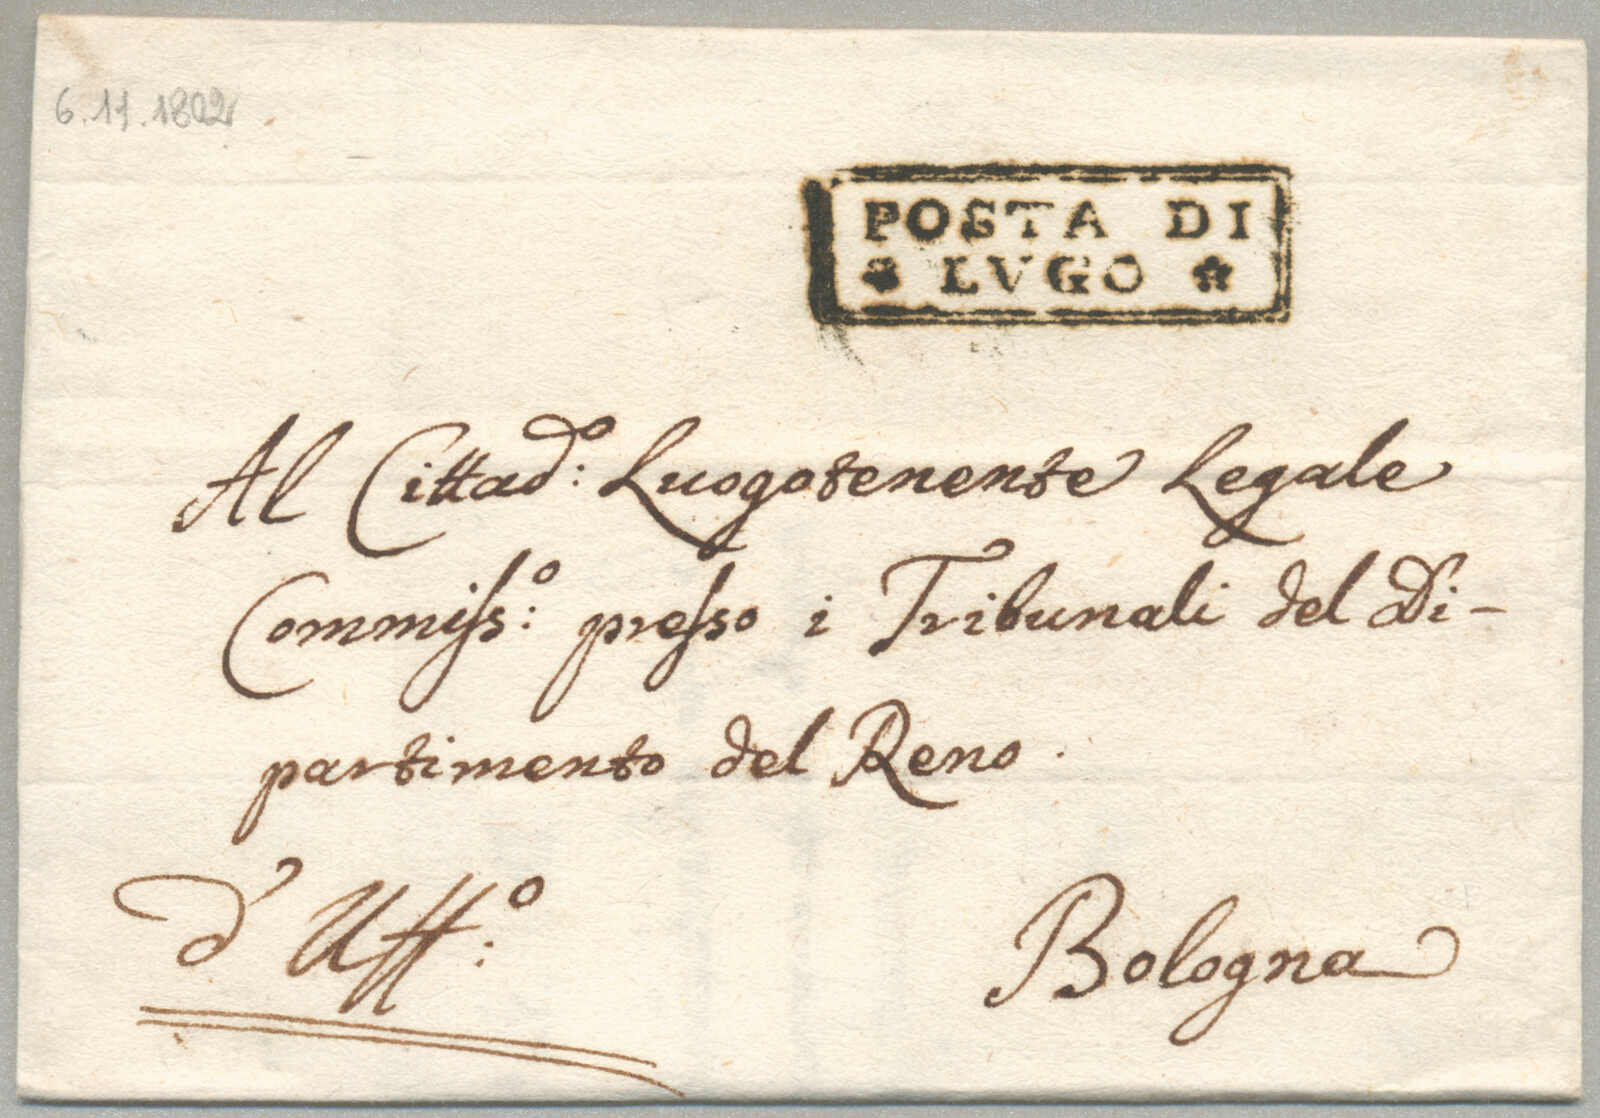 6.11.1802
POSTA DI
* LVGO *
Al Cittad:º Luogotenente Legale
Commiſs:º preſso i Tribunali del Di-
partimento del Reno.
d'Uff:º
Bologna